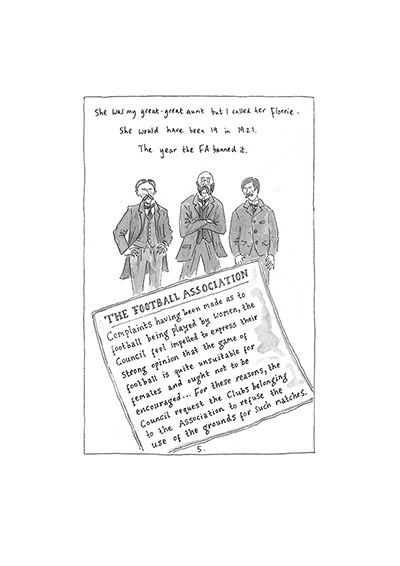 She was my great-great aunt but I called her Florrie.
She would have been 19 in 1921.
The year the FA banned it.
THE FOOTBALL ASSOCIATION
Complaints having been made as to
football being played by women, the
Council feel impelled to express their
strong opinion that the game of
football is quite unsuitable for
females and ought not to be
encouraged... For these reasons, the
Council request the Clubs belonging
to the Association to refuse the
use of the grounds for such matches.
5.